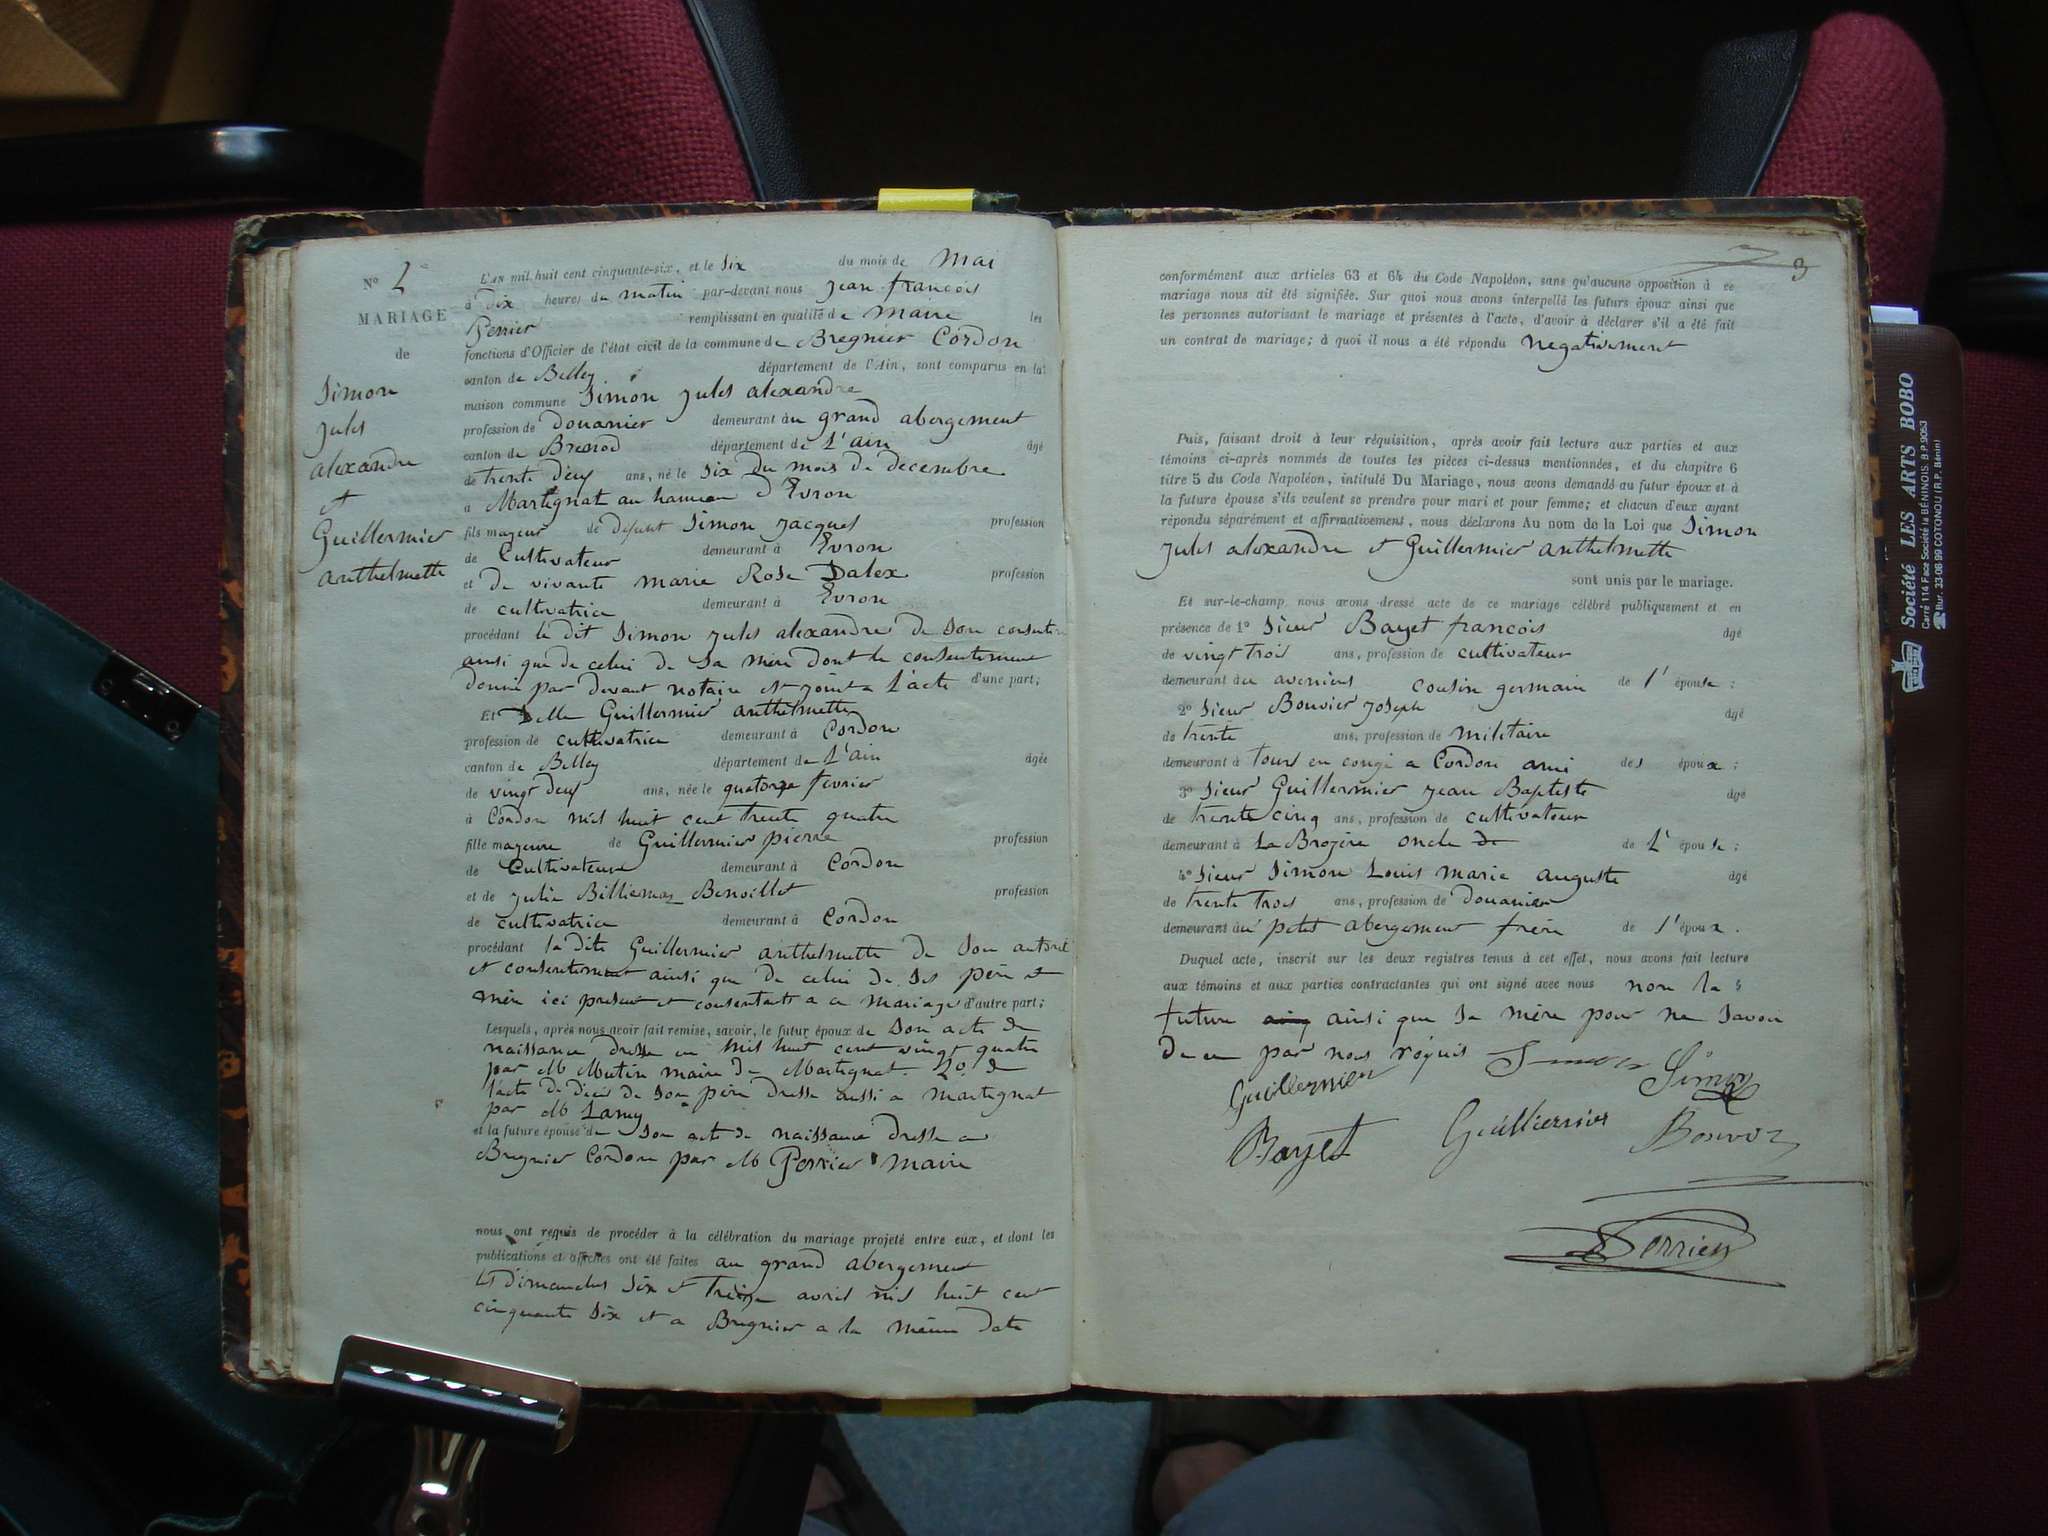 N° 2
MARIAGE
de
Simon
jules
alexandre
et
Guillermier
anthelmette
L'AN mil huit cent cinquante-six, et le Six du mois de Mai
à Dix heures du matin par-devant nous jean francois
Perrier remplissant en qualité de Maire les
fonctions d'Officier de l'état civil de la commune de Bregnier Cordon
canton de Belley département de l'Ain, sont comparus en la
maison commune Simon jules alexandre
profession de douanier demeurant au grand abergement
canton de Brenod département de L'ain âgé
de trente deux ans, né le Six du mois de decembre
à Martignat au hameau d'Evron
fils majeur de defunt Simon jacques profession
de Cultivateur demeurant à Evron
et de vivante marie Rose Dalex profession
de cultivatrice demeurant à Evron
procédant le dit Simon jules alexandre de Son consente
ainsi que de celui de Sa mere dont le consentement
donné par devant notaire est joint a L'acte d'une part;
Et Delle Guillermier anthelmette
profession de cultivatrice demeurant à Cordon
canton de Belley département de L'ain âgée
de vingt deux ans, née le quatorze fevrier
à Cordon mil huit cent trente quatre
fille majeure de Guillermier pierre profession
de Cultivateur demeurant à Cordon
et de julie Billiemaz Benoillet profession
de cultivatrice demeurant à Cordon
procédant la dite Guillermier anthelmette de Son autorité
et consentement ainsi que de celui de Ses père et
mère ici present et consentants a ce mariage d'autre part;
Lesquels, après nous avoir fait remise, savoir, le futur époux de Son acte de
naissance dresse en mil huit cent vingt quatre
par M Mutin maire de Martignat. 2o. de
l'acte de décès de Son père dresse aussi a martignat
par M Lamy
et la future épouse de Son acte de naissance dresse a
Bregnier Cordon par M Perrier maire
nous ont requis de procéder à la célébration du mariage projeté entre eux, et dont les
publications et affiches ont été faites au grand abergement
les Dimanches Six et Treize avril mil huit cent
cinquante Six et a Bregnier a la même date
3
conformément aux articles 63 et 64 du Code Napoléon, sans qu'aucune opposition à ce
mariage nous ait été signifiée. Sur quoi nous avons interpellé les futurs époux ainsi que
les personnes autorisant le mariage et présentes à l'acte, d'avoir à déclarer s'il a été fait
un contrat de mariage; à quoi il nous a été répondu negativement
Puis, faisant droit à leur réquisition, après avoir fait lecture aux parties et aux
témoins ci-après nommés de toutes les pièces ci-dessus mentionnées, et du chapitre 6
titre 5 du Code Napoléon, intitulé Du Mariage, nous avons demandé au futur époux et à
la future épouse s'ils veulent se prendre pour mari et pour femme; et chacun d'eux ayant
répondu séparément et affirmativement, nous déclarons Au nom de la Loi que Simon
jules alexandre et Guillermier anthelmette
sont unis par le mariage.
Et sur-le-champ nous avons dressé acte de ce mariage célébré publiquement et en
présence de 1° Sieur Bayet francois âgé
de vingt trois ans, profession de cultivateur
demeurant au aveniers cousin germain de l'épouse;
2° Sieur Bouvier joseph âgé
de trente ans, profession de militaire
demeurant à tour en congé a Cordon ami des époux;
3° Sieur Guillermier jean Baptiste âgé
de trente cinq ans, profession de cultivateur
demeurant à La Brozère oncle de de L'épouse;
4° Sieur Simon Louis marie auguste âgé
de trente trois ans, profession de douanier
demeurant au petit abergement frère de l'époux.
Duquel acte, inscrit sur les deux registres tenus à cet effet, nous avons fait lecture
aux témoins et aux parties contractantes qui ont signé avec nous non la
future ainsi que Sa mère pour ne Savoir
de ce par nous réquis Simon Simon
Guillermier
Bayet Guilliermier Bouvier
Perrier
Société LES ARTS BOBO
Carré 114 Face Société la BÉNINOIS. B.P. 9053
Bur. 33-08-99 COTONOU (R.P. Bénin)